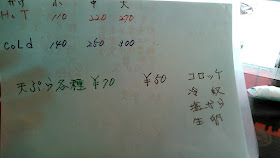 小 中 大
HOT 110 220 270
COLD 140 250 300
天ぷら各種 ¥70 ¥50
コロッケ
生卵